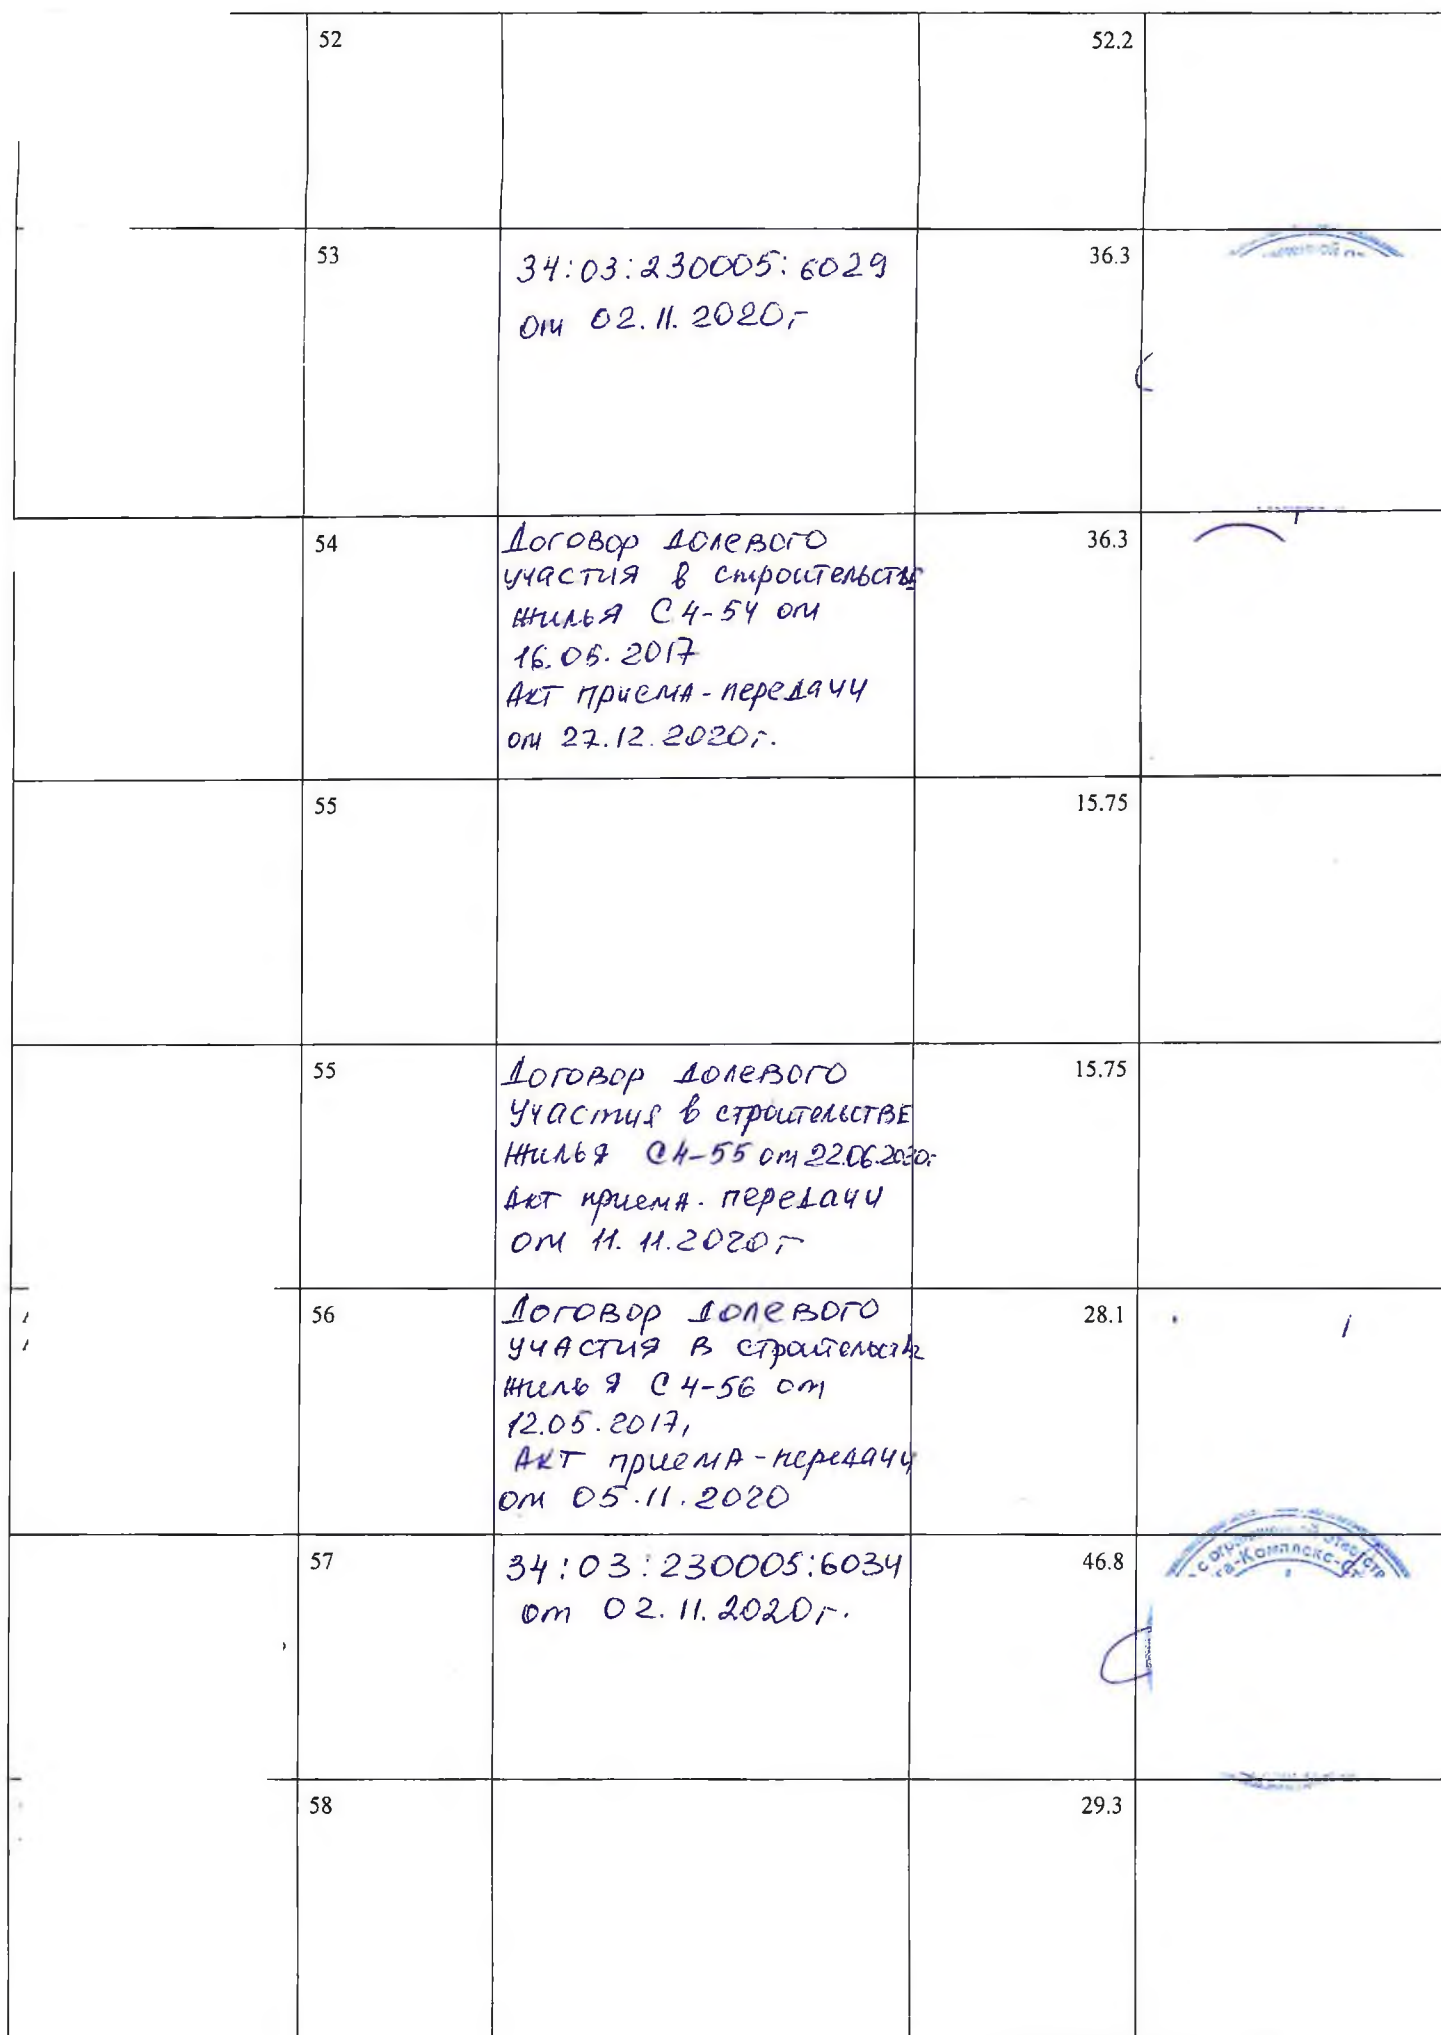 52
52.2
53
34:03:230005:6029
от 02.11.2020г
36.3
54
Договор долевого
участия в строительстве
жилья С4-54 от
16.05.2017
Акт приема-передачи
от 27.12.2020г.
36.3
55
15.75
55
Договор долевого
участия в строительстве
жилья С4-55 от 22.06.2020г
Акт приема-передачи
от 11.11.2020г
15.75
56
Договор долевого
участия в строительстве
жилья С4-56 от
12.05.2017,
Акт приема-передачи
от 05.11.2020
28.1
57
34:03:230005:6034
от 02.11.2020г.
46.8
а-Комплекс-С
58
29.3